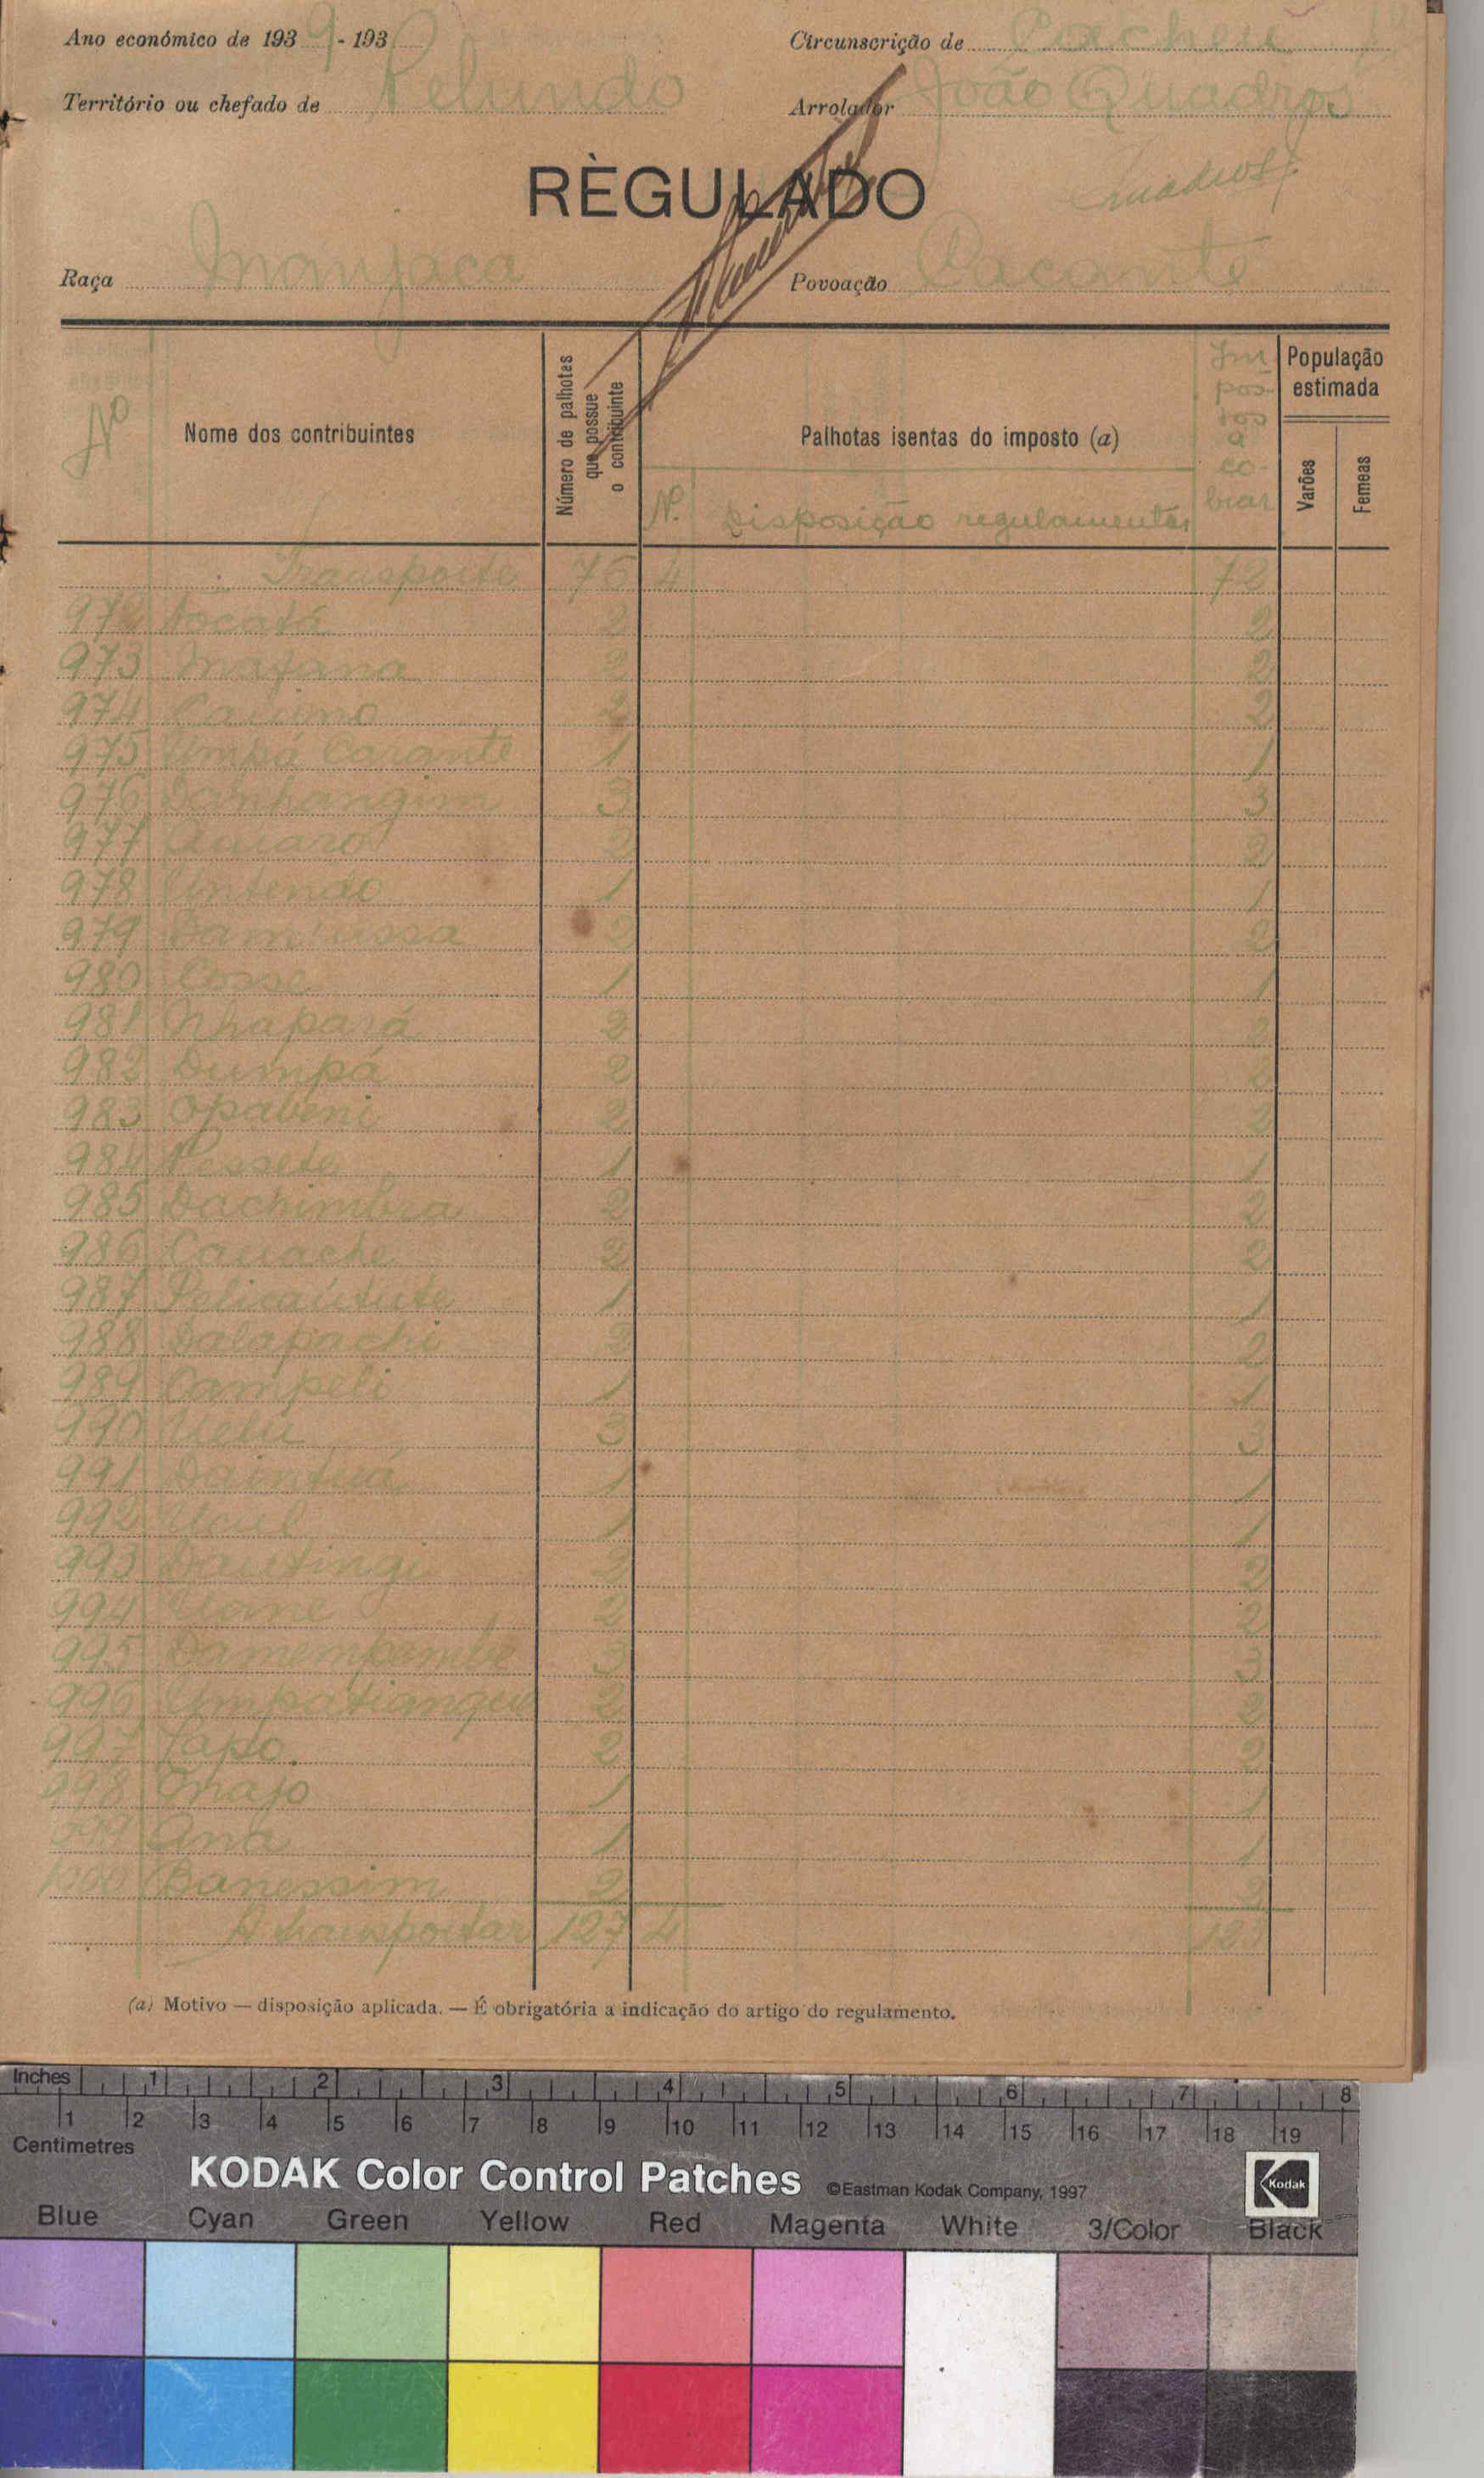 Ano económico de 1939 - 193
Circunscrição de Cacheu
Território ou chefado de Pelundo
Arrolador João Quadros
RÈGULADO
Quadros
Raça Manjaca
Povoação Cacante
Nº
Nome dos contribuintes
Número de palhotas que possue o contribuinte
Palhotas isentas do imposto (a)
Nº. Disposição regulamentar
Impostos a cobrar
População estimada
Varões
Femeas
Transporte 76 4 72
972 Docatá 2 2
973 Mafana 2 2
974 2 2
975 Umpá Carante 1 1
976 Danhangim 3 3
977 2 2
978 Untendo 1 1
979 Dam'ussa 2 2
980 Cosse 1 1
981 Nhapará 2 2
982 Dumpá 2 2
983 Opabeni 2 2
984 1 1
985 Dachimbra 2 2
986 Cauache 2 2
987 1 1
988 Dalapachi 2 2
989 Campeli 1 1
990 3 3
991 Daintuá 1 1
992 1 1
993 Dautingi 2 2
994 2 2
995 Damempambe 3 3
996 Umpatiangue 2 2
997 2 2
998 Majo 1 1
999 Ana 1 1
1000 Banessim 2 2
A transportar 127 4 123
(a) Motivo — disposição aplicada. — É obrigatória a indicação do artigo do regulamento.
Inches 1 2 3 4 5 6 7 8
1 2 3 4 5 6 7 8 9 10 11 12 13 14 15 16 17 18 19
Centimetres
KODAK Color Control Patches ©Eastman Kodak Company, 1997 Kodak
Blue Cyan Green Yellow Red Magenta White 3/Color Black